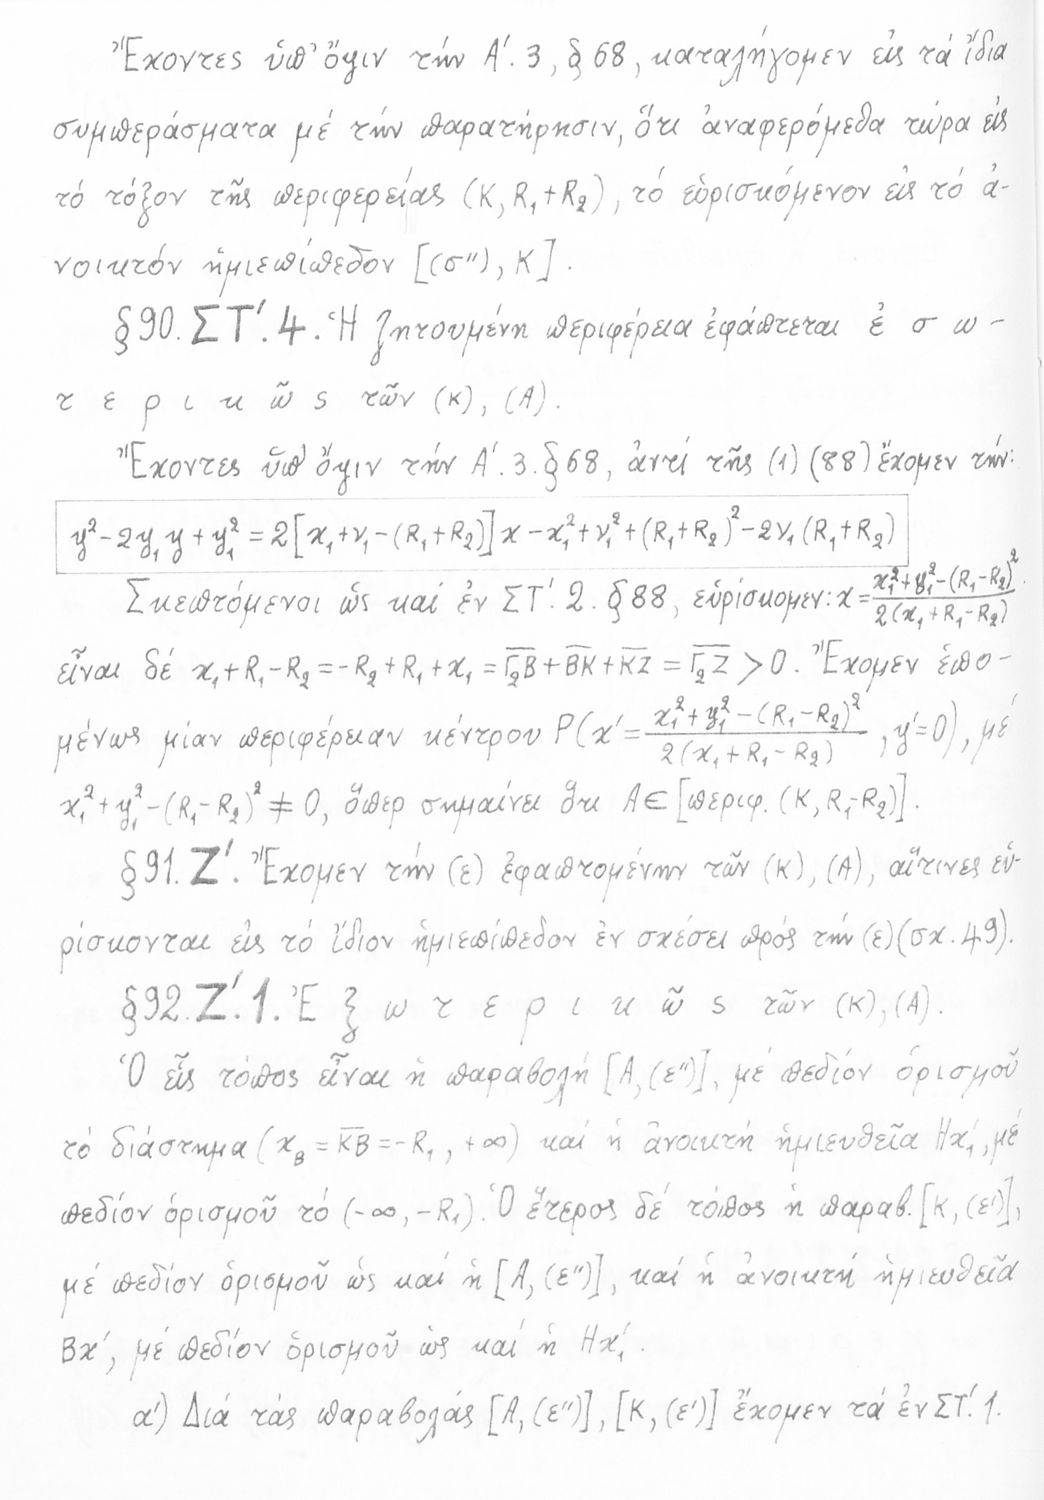 Ἔχοντες ὑπ' ὄψιν τήν Α΄. 3, § 68, καταλήγομεν εἰς τά ἴδια
συμπεράσματα μέ τήν παρατήρησιν, ὅτι ἀναφερόμεθα τώρα εἰς
τό τόξον τῆς περιφερείας (K, R₁+R₂), τό εὑρισκόμενον εἰς τό ἀ-
νοικτόν ἡμιεπίπεδον [(σ''), K].
§90. ΣΤ΄. 4. Ἡ ζητουμένη περιφέρεια ἐφάπτεται ἐ σ ω -
τ ε ρ ι κ ῶ ς τῶν (K), (A).
Ἔχοντες ὑπ' ὄψιν τήν Α΄. 3. § 68, ἀντί τῆς (1) (88) ἔχομεν τήν:
y² - 2y₁y + y₁² = 2[x₁ + ν₁ - (R₁+R₂)]x - x₁² + ν₁² + (R₁+R₂)² - 2ν₁(R₁+R₂)
Σκεπτόμενοι ὡς καί ἐν ΣΤ΄. 2. § 88, εὑρίσκομεν: x = (x₁² + y₁² - (R₁-R₂)²) / (2(x₁+R₁-R₂)).
εἶναι δέ x₁+R₁-R₂ = -R₂+R₁+x₁ = Γ̅₂̅B̅ + B̅K̅ + K̅Z̅ = Γ̅₂̅Z̅ > 0. Ἔχομεν ἑπο-
μένως μίαν περιφέρειαν κέντρου P(x' = (x₁² + y₁² - (R₁-R₂)²) / (2(x₁+R₁-R₂)), y'=0), μέ
x₁² + y₁² - (R₁-R₂)² ≠ 0, ὅπερ σημαίνει ὅτι A∈[περιφ. (K, R₁-R₂)].
§91. Ζ΄. Ἔχομεν τήν (ε) ἐφαπτομένην τῶν (K), (A), αἵτινες εὑ-
ρίσκονται εἰς τό ἴδιον ἡμιεπίπεδον ἐν σχέσει πρός τήν (ε) (σχ. 49).
§92. Ζ΄. 1. Ἐ ξ ω τ ε ρ ι κ ῶ ς τῶν (K), (A).
Ὁ εἷς τόπος εἶναι ἡ παραβολή [A, (ε'')], μέ πεδίον ὁρισμοῦ
τό διάστημα (x_B = K̅B̅ = -R₁, +∞) καί ἡ ἀνοικτή ἡμιευθεῖα Hx₁', μέ
πεδίον ὁρισμοῦ τό (-∞, -R₁). Ὁ ἕτερος δέ τόπος ἡ παραβ. [K, (ε')],
μέ πεδίον ὁρισμοῦ ὡς καί ἡ [A, (ε'')], καί ἡ ἀνοικτή ἡμιευθεῖα
Bx', μέ πεδίον ὁρισμοῦ ὡς καί ἡ Hx₁'.
α') Διά τάς παραβολάς [A, (ε'')], [K, (ε')] ἔχομεν τά ἐν ΣΤ΄. 1.